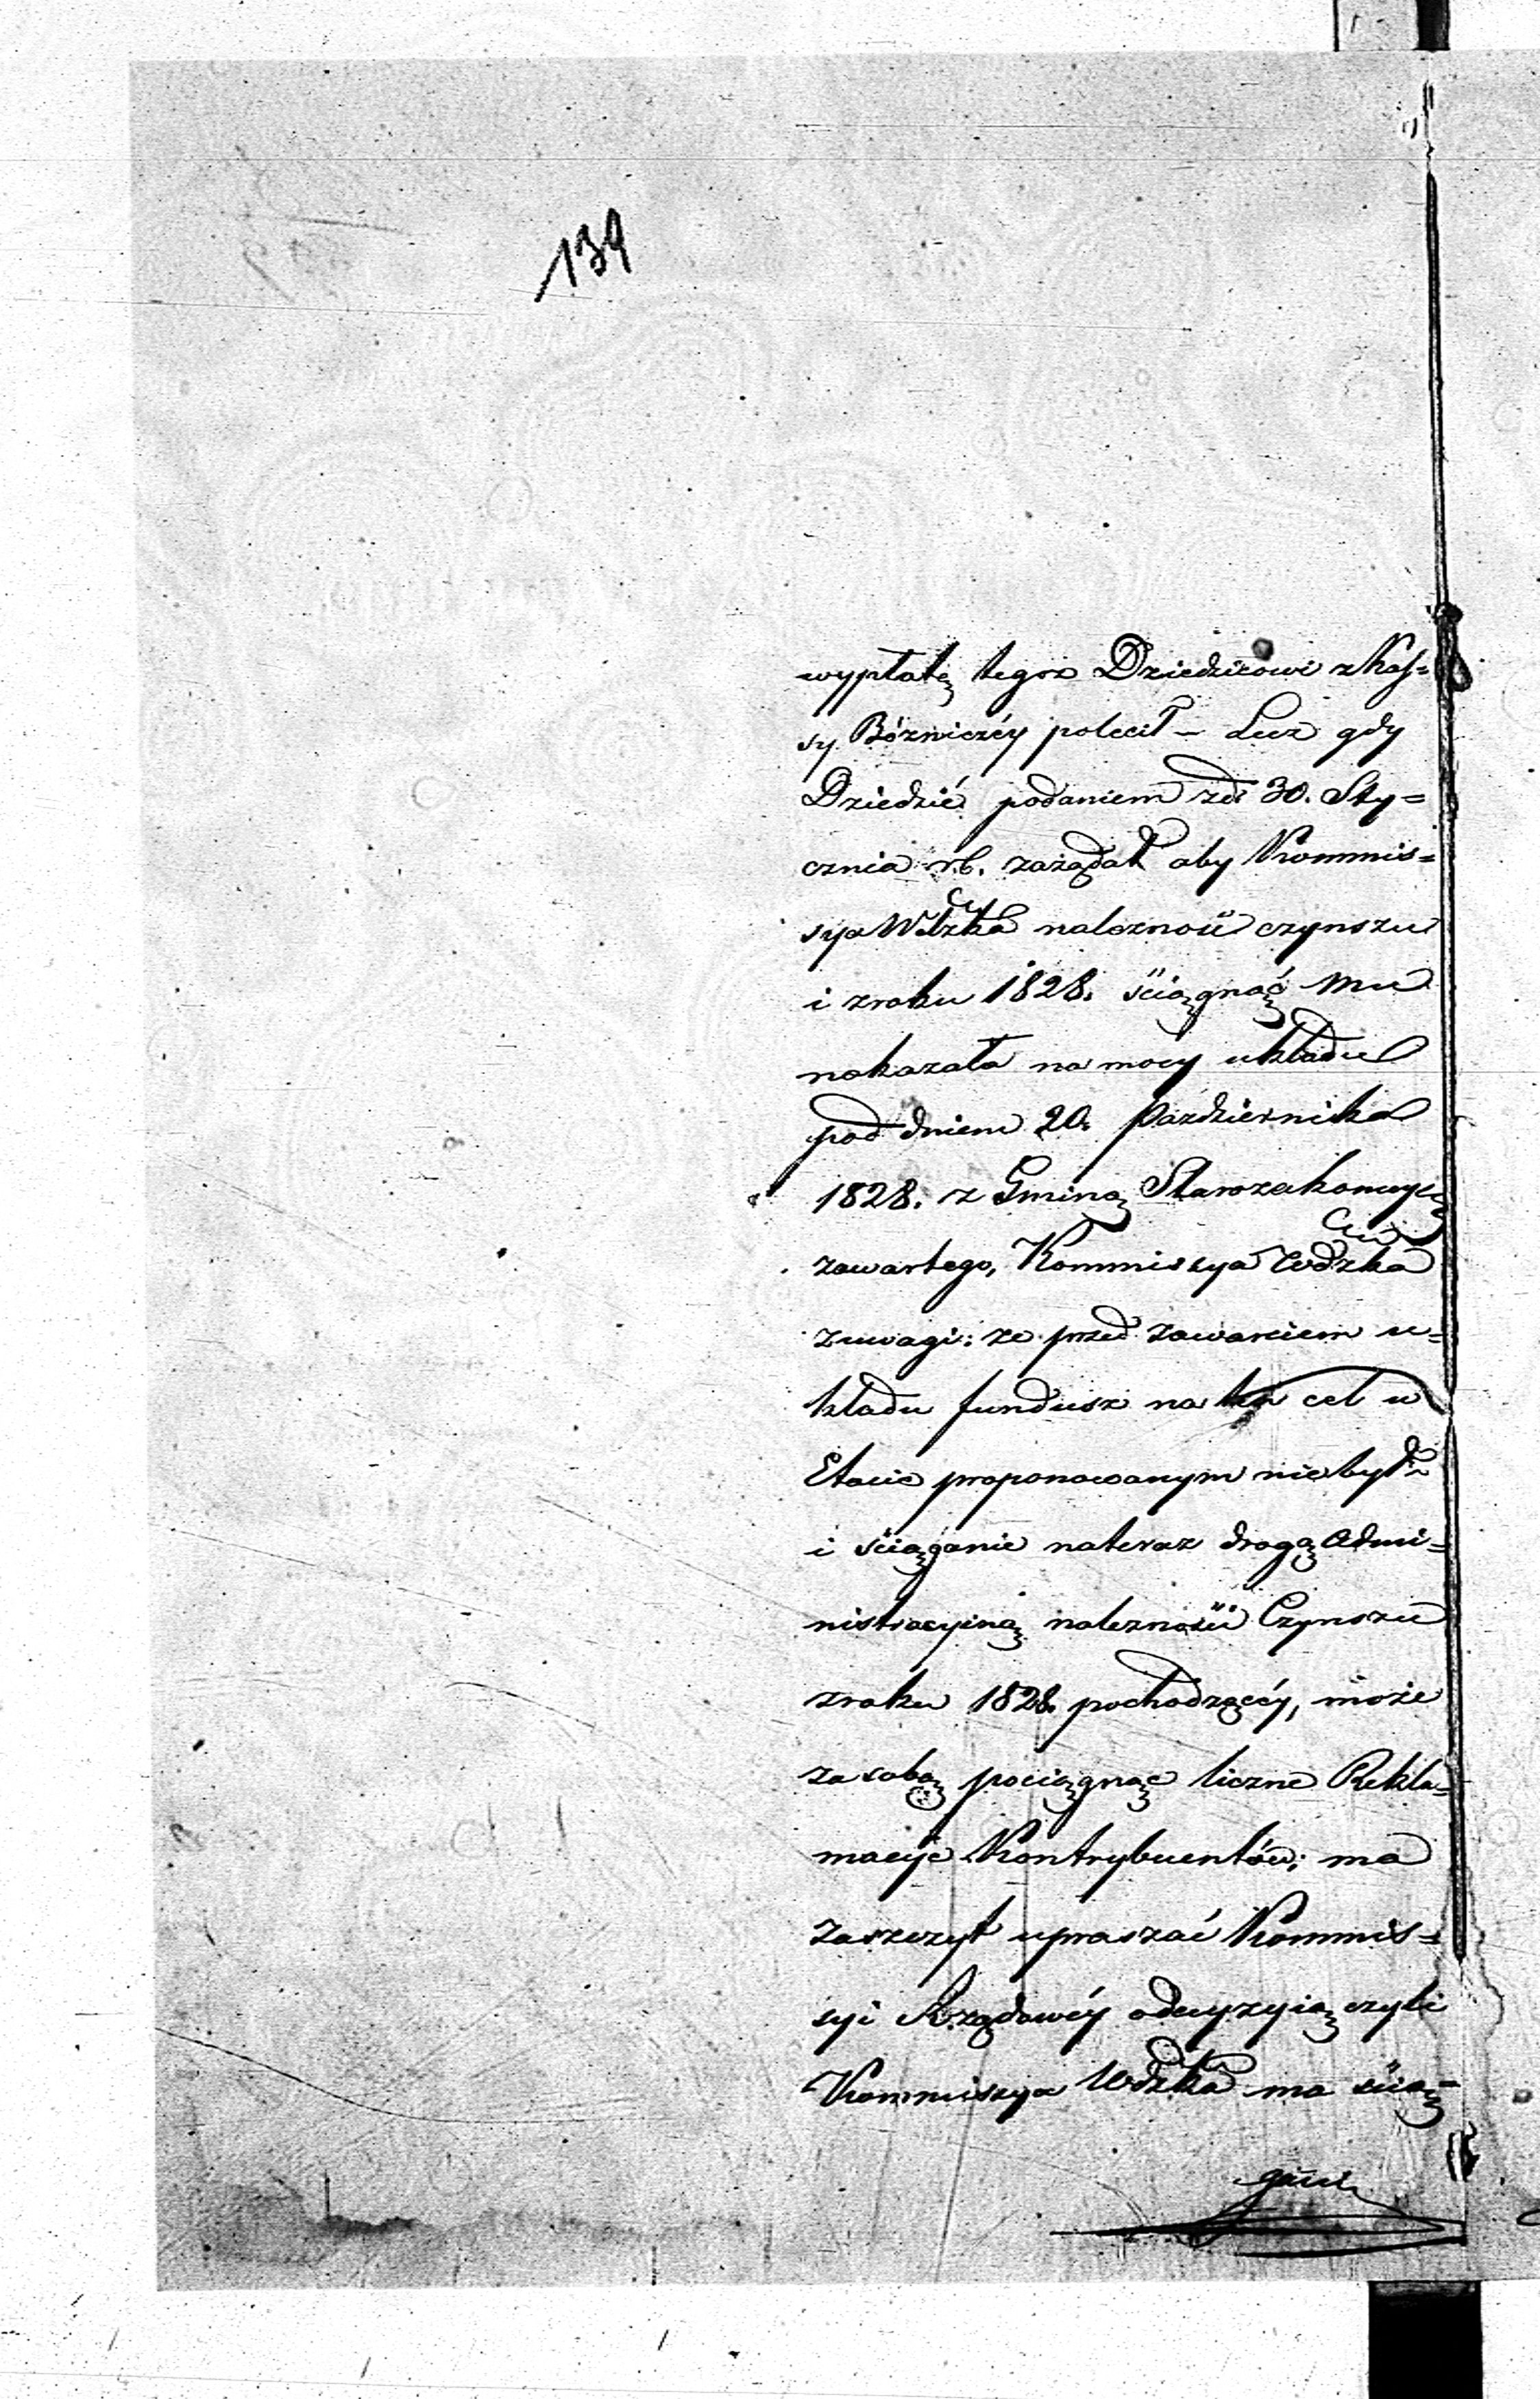 139
wypłatę tegoż Dziedzicowi z Kas=
sy Bóżniczéy polecił – Lecz gdy
Dziedzic podaniem zd. 30. Sty=
cznia r.b. zażądał aby Kommis=
sya Wdzka należność czynszu
i z roku 1828. ściągnąć mu
nakazała na mocy układu
pod dniem 20. Października
1828. z Gminą Starozakonnych
zawartego, Kommissya Wdzka
z uwagi: że przed zawarciem u=
kładu fundusz na ten cel w
Etacie proponowanym nie był
i ściąganie na teraz drogą Admi=
nistracyiną należności Czynszu
z roku 1828. pochodzącéy, może
za sobą pociągnąć liczne Rekla=
macyje Kontrybuentów; ma
zaszczyt upraszać Kommis=
syi Rządowéy o decyzyią czyli
Kommissya Wdzka ma ścią=